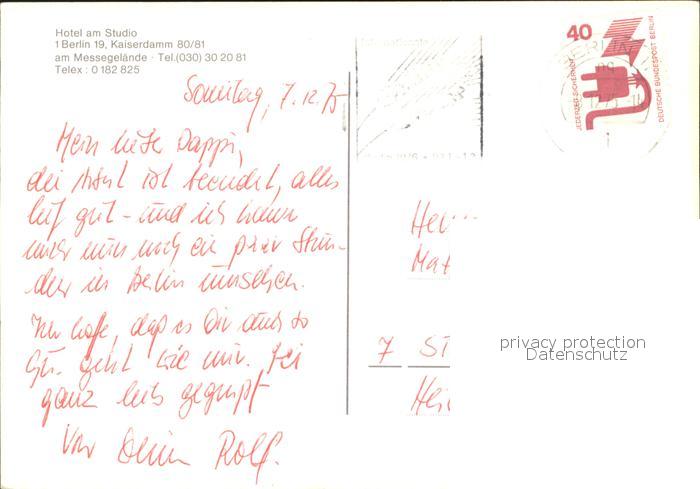 Hotel am Studio
1 Berlin 19, Kaiserdamm 80/81
am Messegelände · Tel.(030) 30 20 81
Telex : 0 182 825
40
JEDERZEIT SICHERHEIT
DEUTSCHE BUNDESPOST BERLIN
BERLIN
Sonntag, 7.12.75
Mein lieber Pappi,
die ist beendet, alles
lief gut – und ich kann
mich nun noch ein paar Stun-
den in Berlin umsehen.
Ich hoffe, daß es Dir auch so
gut geht wie mir. Sei
ganz lieb gegrüßt
Von Deinem Rolf.
Her
Max
7 ST
Hei
privacy protection
Datenschutz